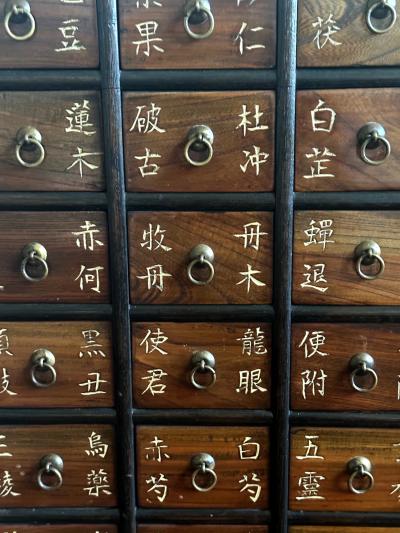 豆
果
仁
茯
蓮木
破古
杜冲
白芷
赤何
牧丹
丹木
蟬退
黑丑
使君
龍眼
便附
烏藥
赤芍
白芍
五靈